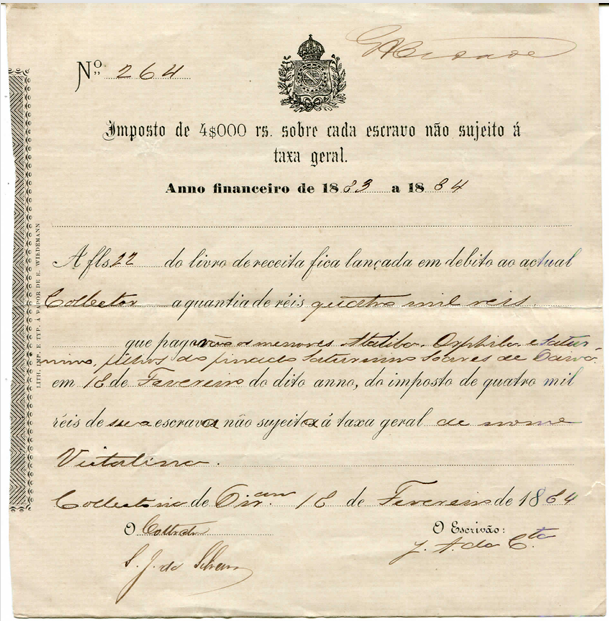 Nº 264
Imposto de 4$000 rs. sobre cada escravo não sujeito á
taxa geral.
Anno financeiro de 1883 a 1884
A fls 22 do livro de receita fica lançada em debito ao actual
Collector a quantia de réis quatro mil reis.
que pagou os menores Matilde, Orphila e Satur-
nino, filhos do finado Saturnino Soares de
em 18 de Fevereiro do dito anno, do imposto de quatro mil
réis de sua escrava não sujeita á taxa geral de nome
Vitalina.
Collectoria de 18 de Fevereiro de 1884
O Collector O Escrivão:
S. J. da J. A. da C.ta
LITH. IMP. E TYP. A VAPOR DE E. WIEDEMANN